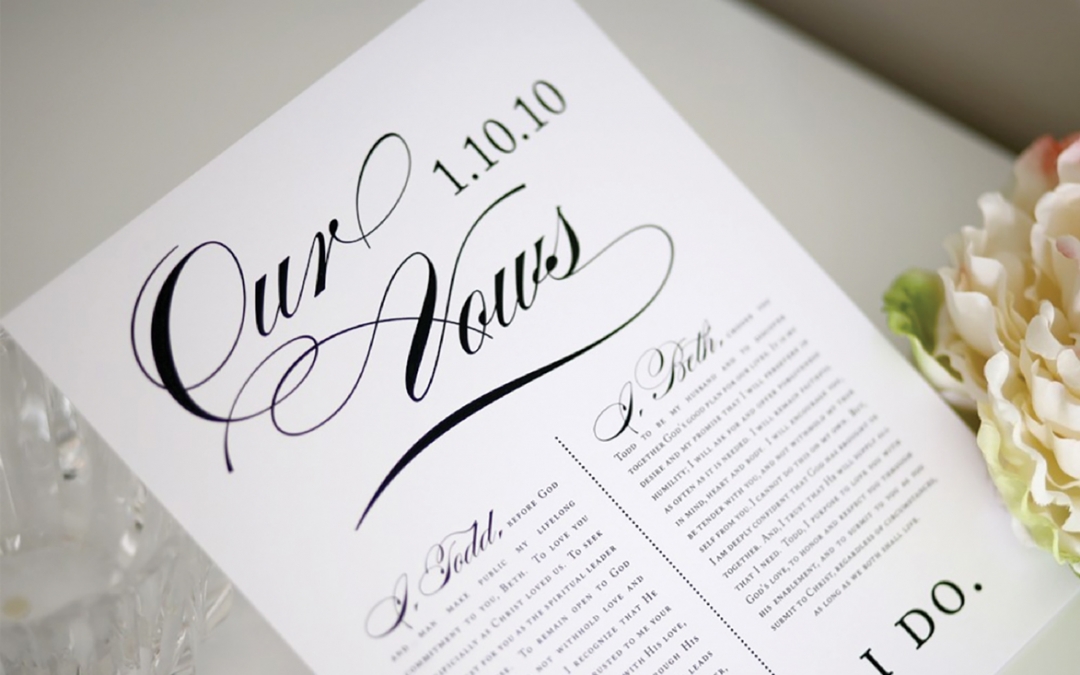 Our 1.10.10
Vows
I, Todd, BEFORE GOD
AND MAN MAKE PUBLIC MY LIFELONG
COMMITMENT TO YOU, BETH. TO LOVE YOU
AS CHRIST LOVED US. TO SEEK
FOR YOU AS THE SPIRITUAL LEADER
TO REMAIN OPEN TO GOD
NOT WITHHOLD LOVE AND
I RECOGNIZE THAT HE
TO ME YOUR
WITH HIS LOVE,
HIS
LEADS
I, Beth, CHOOSE YOU
TODD TO BE MY HUSBAND AND TO DISCOVER
TOGETHER GOD'S GOOD PLAN FOR OUR LIVES. IT IS MY
DESIRE AND MY PROMISE THAT I WILL PERSEVERE IN
HUMILITY, I WILL ASK FOR AND OFFER FORGIVENESS
AS OFTEN AS IT IS NEEDED. I WILL REMAIN FAITHFUL
IN MIND, HEART AND BODY. I WILL ENCOURAGE YOU,
BE TENDER WITH YOU, AND NOT WITHHOLD MY TRUE
SELF FROM YOU. I CANNOT DO THIS ON MY OWN. BUT,
I AM DEEPLY CONFIDENT THAT GOD HAS BROUGHT US
TOGETHER. AND, I TRUST THAT HE WILL SUPPLY ALL
THAT I NEED. TODD, I PURPOSE TO LOVE YOU WITH
GOD'S LOVE, TO HONOR AND RESPECT YOU THROUGH
HIS ENABLEMENT, AND TO SUBMIT TO YOU AS YOU
SUBMIT TO CHRIST, REGARDLESS OF CIRCUMSTANCES,
AS LONG AS WE BOTH SHALL LIVE.
I DO.